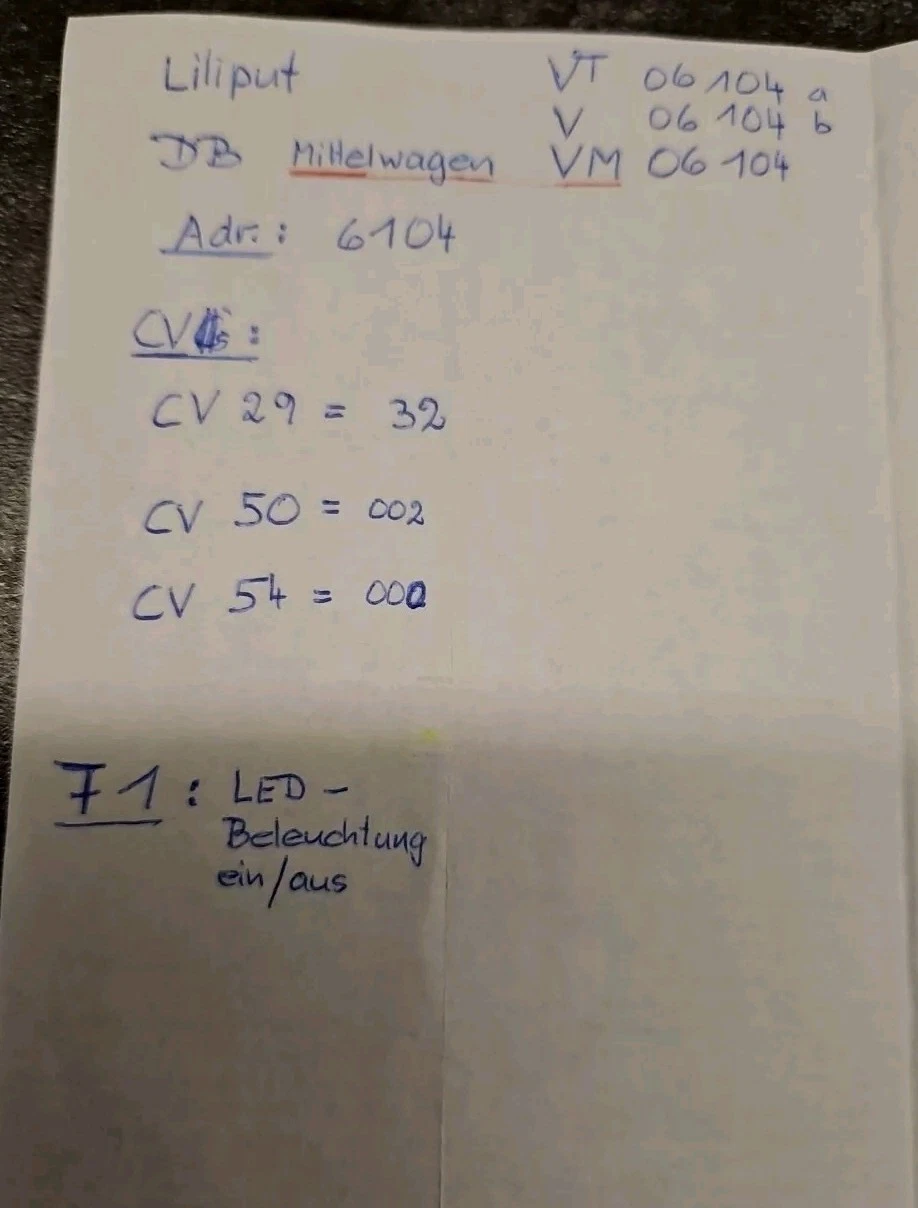 Liliput VT 06 104 a
V 06 104 b
DB Mittelwagen VM 06 104
Adr.: 6104
CVs:
CV 29 = 32
CV 50 = 002
CV 54 = 000
F1: LED-
Beleuchtung
ein/aus